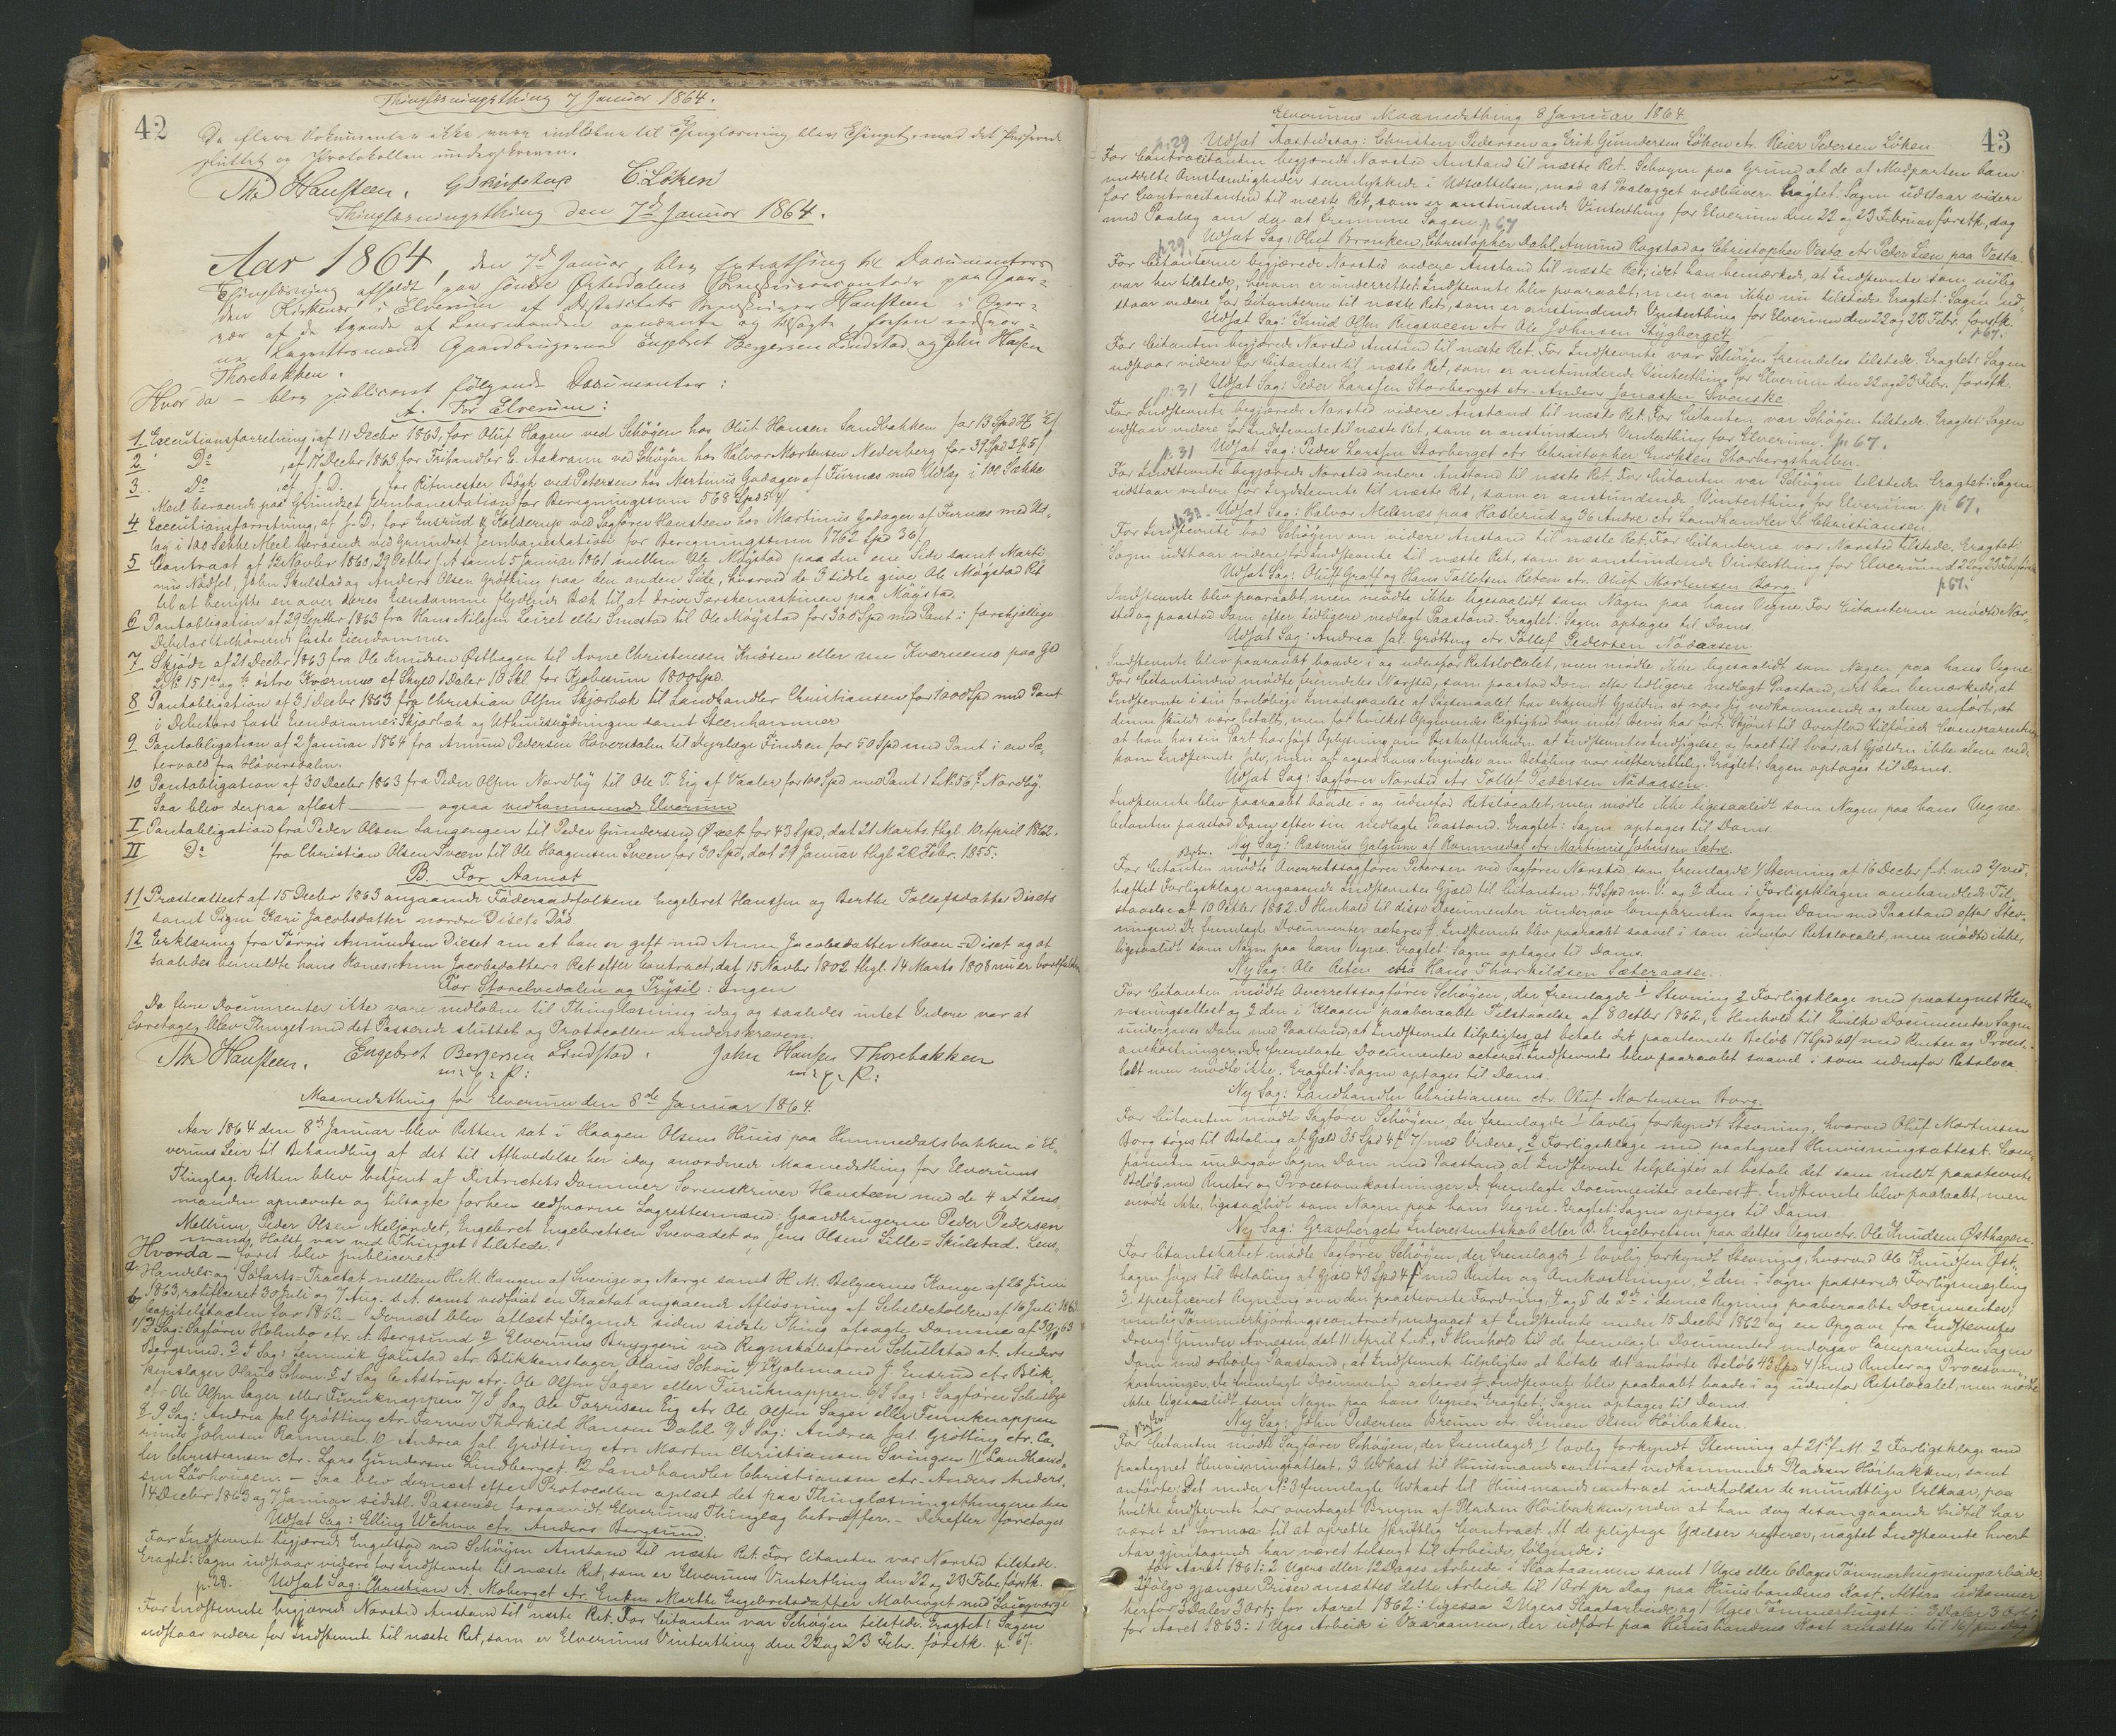 Thinglæsningsthing 7 Januar 1864.
42
Da flere Dokumenter ikke vare indløbne til Thinglæsning blev Thinget med det Passerede
sluttet og Protokollen underskreven.
Th Hansteen. G C. Løken
Thinglæsningsthing den 7de Januar 1864.
Aar 1864, den 7de Januar, blev Extrathing til Documenters
Thinglæsning afholdt paa søndre Østerdalens Sorenskrivercontoir paa Gaar-
den Kirkenær i Elverum af Districtets Sorenskriver Hansteen i Over-
vær af de tvende af Lensmanden opnævnte og tilsagte forhen edsvor-
ne Laugrettesmænd Gaardbrugerne Engebret Bergersen Lindstad og John Hansen
Thorebakken.
Hvor da – blev publiceret følgende Documenter:
A. For Elverum:
1 Executionsforretning af 11 Decbr 1863, for Oluf Hagen ved Schøyen hos Oluf Hansen Sandbakken for 13 Spd
2 Do af 17 Decbr 1863 for Frihandler E. Aakrann ved Schøyen hos Halvor Mortensen Nederberg for 37 Spd 2 ₰ 5/
3 Do af s. D. for Ritmester Bøgh ved Petersen hos Martinus Godager af Furnæs med Udlæg i 100 Sække
Meel beroende paa Grundset Jernbanestation for Beregningssum 568 Spd 54/
4 Executionsforretning, af s. D. for Ensrud & Kolderup ved Sagfører Hansteen hos Martinus Godager af Furnæs med Ud-
læg i 100 Sække Meel beroende ved Grundset Jernbanestation for Beregningssum 1762 Spd 36/
5 Contract af 12 Novbr 1860, 29 Octbr s. A. samt 5 Januar 1861 mellem Ole Møystad paa den ene Side samt Marti-
nus Nødset, John Skulstad og Anders Olsen Grøtting paa den anden Side, hvorved de 3 sidste give Ole Møystad Ret
til at benytte en over deres Eiendomme flydende Bæk til at drive Tærskemaskinen paa Møystad.
6 Pantobligation af 29 Septbr 1863 fra Hans Nilsen Leiret eller Smestad til Ole Møystad for 300 Spd med Pant i forskjellige
Debitor tilhørende faste Eiendomme.
7 Skjøde af 21 Decbr 1863 fra Ole Knudsen Østhagen til Arne Christensen Knøsen eller nu Kværnmo paa Gd
LNo 151 østre Kværnmo af Skyld 1 Daler 10 Skl. for Kjøbesum 1800 Spd.
8 Pantobligation af 31 Decbr 1863 fra Christian Olsen Skjærbæk til Landhandler Christiansen for 1000 Spd med Pant
i Debitors faste Eiendomme: Skjærbæk og Uthuusrydningen samt Steenhammer
9 Pantobligation af 2 Januar 1864 fra Amund Pedersen Hoversdalen til Dyrlæge Findsen for 50 Spd med Pant i en Sæ-
tervold fra Hoversdalen.
10 Pantobligation af 30 Decbr 1863 fra Peder Olsen Nordby til Ole T. Eig af Vaaler for 100 Spd med Pant i LN. 56 Nordby.
Saa blev derpaa aflæst – ogsaa vedkommende Elverum
I Pantobligation fra Peder Olsen Langengen til Peder Gundersen Øxset for 43 Spd, dat 21 Marts thgl. 10 April 1862.
II Do fra Christian Olsen Sveen til Ole Haagensen Sveen for 30 Spd, dat 29 Januar thgl 20 Febr. 1855.
B. For Aamot
11 Præsteattest af 15 Decbr 1863 angaaende Føderaadsfolkene Engebret Hansen og Berthe Tollefsdatter Disets
samt Pigen Kari Jacobsdatter nordre Disets Død
12 Erklæring fra Tørris Amundsen Diset om at han er gift med Anne Jacobsdatter Moen=Diset og at
saaledes bemeldte hans Kones Anne Jacobsdatters Ret efter Contract, dat 15 Novbr 1802 thgl. 14 Marts 1808 nu er bortfalden
For Storelvedalen og Trysil: Ingen
Da flere Documenter ikke vare indløbne til Thinglæsning idag og saaledes intet Videre var at
foretage, blev Thinget med det Passerede sluttet og Protocollen underskreven.
Th Hansteen. Engebret Bergersen Lindstad. John Hansen Thorebakken
m. p. P: m. p. P:
Maanedsthing for Elverum den 8de Januar 1864.
Aar 1864 den 8de Januar blev Retten sat i Haagen Olsens Huus paa Hummedalsbakken i El-
verums Leir til Behandling af det til Afholdelse her idag anordnede Maanedsthing for Elverums
Thinglag. Retten blev betjent af Districtets Dommer Sorenskriver Hansteen med de 4 af Lens-
manden opnævnte og tilsagte forhen edsvorne Laugrettesmænd: Gaardbrugerne Peder Pedersen
Mellum, Peder Olsen Meljordet, Engebret Engebretsen Svevadet og Jens Olsen Lille=Skulstad. Lens-
mand Holst var ved Thinget tilstede.
Hvorda – først blev publiceret
a/ Handels- og Søfarts-Tractat mellem H. M. Kongen af Sverige og Norge samt H. M. Belgiernes Konge af 26 Juni
1863, ratificeret 30 Juli og 7 Aug. s. A. samt vedføiet en Tractat angaaende Afløsning af Scheldetolden af 16 Juli 1863
b/ Capitelstaxten for 1863. – Dernæst blev aflæst følgende siden sidste Thing afsagte Domme af
1/ I Sag: Sagfører Hohnbo ctr. A. Bergsund 2 Elverums Bryggeri ved Regnskabsfører Schulstad ctr. Anders
Bergsund. 3 I Sag: Jemmik Gaustad ctr. Blikkenslager Olaus Schou 4/ Kjøbmand J. Ensrud ctr. Blik-
kenslager Olaus Schou. 5 I Sag C. Astrup ctr. Ole Olsen Sager eller Furuknappen. 6/ I Sag: Sagfører Schultze
ctr. Ole Olsen Sager eller Furuknappen 7/ I Sag Ole Torrisen Eig ctr. Ole Olsen Sager eller Furuknappen
8 I Sag: Andrea sal. Grøtting ctr. Farver Thorkild Hansen Dahl 9/ I Sag: Andrea sal. Grøtting ctr. Ca-
rinus Johnsen Rammen. 10 Andrea sal. Grøtting ctr. Marten Christiansen Svingen 11 Landhand-
ler Christiansen ctr. Lars Gundersen Lindberget. 12 Landhandler Christiansen ctr. Anders Anders-
sen Løvhougen. – Saa blev dernæst efter Protocollen oplæst det paa Thinglæsningsthingene den
14 Decbr 1863 og 7 Januar sidstl. Passerede forsaavidt Elverums Thinglag betræffer. – Derefter foretoges
Udsat Sag: Elling Wehme ctr. Anders Bergsund.
For Indstevnte begjærede Engelstad ved Schøyen Anstand til næste Ret. For Citanten var Norsted tilstede.
Eragtet: Sagen udstaar videre for Indstevnte til næste Ret, som er Elverums Vinterthing den 22 og 23 Febr. førstk.
p. 28. Udsat Sag: Christian A. Moberget ctr. Enken Marthe Engebretsdatter Moberget med Laugværge
For Indstevnte begjærede Norsted Anstand til næste Ret. For Citanten var Schøyen tilstede. Eragtet: Sagen
udstaar videre for Indstevnte til næste Ret, som er Elverums Vinterthing den 22 og 23 Febr. førstk. p. 67.
Elverums Maanedsthing 8 Januar 1864.
43
p. 29 Udsat Aastedssag: Christen Pedersen og Erik Gundersen Løken ctr. Reier Pedersen Løken.
For Contracitanten begjærede Norsted Anstand til næste Ret. Schøyen paa Grund af de af Modparten ham
meddelte Omstændigheder samtykkede i Udsættelsen, mod at Paalægget vedbliver. Eragtet: Sagen udstaar videre
for Contracitanten til næste Ret, som er anstundende Vinterthing for Elverum den 22 og 23 Februar førstk, dog
med Paalæg om da at fremme Sagen. p 67
p. 29 Udsat Sag: Oluf Bronken, Christopher Dahl, Amund Ragstad og Christopher Vesta ctr. Peder Lien paa Vesta.
For Citanterne begjærede Norsted videre Anstand til næste Ret, idet han bemærkede, at Indstevnte som nylig
var her tilstede, herom er underrettet. Indstevnte blev paaraabt, men var ikke nu tilstede. Eragtet: Sagen ud-
staar videre for Citanterne til næste Ret, som er anstundende Vinterthing for Elverum den 22 og 23 Febr. førstk.
p 67.
Udsat Sag: Knud Olsen Rugsveen ctr. Ole Johnsen Stygberget.
For Citanten begjærede Norsted Anstand til næste Ret. For Indstevnte var Schøyen fremdeles tilstede. Eragtet: Sagen
udstaar videre for Citanten til næste Ret, som er anstundende Vinterthing for Elverum den 22 og 23 Febr. førstk.
p: 31 Udsat Sag: Peder Larssen Storberget ctr. Anders Jonassen Svenske
For Indstevnte begjærede Norsted videre Anstand til næste Ret. For Citanten var Schøyen tilstede. Eragtet: Sagen
udstaar videre for Indstevnte til næste Ret, som er anstundende Vinterthing for Elverum. p: 67.
p. 31 Udsat Sag: Peder Larssen Storberget ctr. Christopher Enoksen Storbergshullen.
For Indstevnte begjærede Norsted videre Anstand til næste Ret. For Citanten var Schøyen tilstede. Eragtet: Sagen
udstaar videre for Indstevnte til næste Ret, som er anstundende Vinterthing for Elverum. p: 67.
p. 32. Udsat Sag: Halvor Melenæs paa Haslerud og 36 Andre ctr. Landhandler S. Christiansen.
For Indstevnte bad Schøyen om videre Anstand til næste Ret. For Citanterne var Norsted tilstede. Eragtet:
Sagen udstaar videre for Indstevnte til næste Ret, som er anstundende Vinterthing for Elverum d 22 og 23 Febr. førstk
p. 67.
Udsat Sag: Oluff Graff og Hans Tollefsen Reten ctr. Oluf Mortensen Borg.
Indstevnte blev paaraabt, men mødte ikke ligesaalidt som Nogen paa hans Vegne. For Citanterne mødte Nor-
sted og paastod Dom efter tidligere nedlagt Paastand. Eragtet: Sagen optages til Doms.
Udsat Sag: Andrea sal. Grøtting ctr. Tollef Pedersen Nødaasen.
Indstevnte blev paaraabt baade i og udenfor Retslocalet, men mødte ikke ligesaalidt som Nogen paa hans Vegne.
For Citantinden mødte fremdeles Norsted, som paastod Dom efter tidligere nedlagt Paastand, idet han bemærkede, at
Indstevnte i sin foreløbige Imødegaaelse af Søgsmaalet har erkjendt Gjælden at være sig vedkommende og alene anført, at
denne skulde være betalt, men for hvilket Opgivendes Rigtighed han intet Bevis har ført. Skjønt til Overflod tilføiede Comparenten,
at han har sin Part har søgt Oplysning om Beskaffenheden af Indstevntes Indsigelse og faaet til Svar, at Gjælden ikke alene ved-
kom Indstevnte selv, men at ogsaa hans Angivelse om Betaling var uefterrettelig. Eragtet: Sagen optages til Doms.
Udsat Sag: Sagfører Norsted ctr. Tollef Pedersen Nødaasen.
Indstevnte blev paaraabt baade i og udenfor Retslocalet, men mødte ikke ligesaalidt som Nogen paa hans Vegne.
Citanten paastod Dom efter sin nedlagte Paastand. Eragtet: Sagen optages til Doms.
Ny Sag: Rasmus Galgum af Rommedal ctr. Martinus Johnsen Sætre.
For Citanten mødte Overretssagfører Petersen ved Sagfører Norsted, som fremlagde 1/ Stevning af 16 Decbr f. A. med 2/ ved-
hæftet Forligsklage angaaende Indstevntes Gjæld til Citanten, 43 Spd m. V. og 3 den i Forligsklagen omhandlede Til-
staaelse af 10 Octbr 1862. I Henhold til disse Documenter undergav Comparenten Sagen Dom med Paastand efter Stev-
ningen. De fremlagte Documenter acteres #. Indstevnte blev paaraabt saavel i som udenfor Retslocalet, men mødte ikke,
ligesaalidt som Nogen paa hans Vegne. Eragtet: Sagen optages til Doms.
Ny Sag: Ole Reten ctra Hans Thorkildsen Sæteraasen.
For Citanten mødte Overretssagfører Schøyen, der fremlagde 1 Stevning 2 Forligsklage med paategnet Hen-
visningsattest og 3 den i Klagen paaberaabte Tilstaaelse af 8 Octbr 1862, i Henhold til hvilke Documenter Sagen
undergaves Dom med Paastand, at Indstevnte tilpligtes at betale det paastevnte Beløb 17 Spd 60/ med Renter og Proces-
omkostninger. De fremlagte Documenter acteres #. Indstevnte blev paaraabt saavel i som udenfor Retsloca-
let men mødte ikke. Eragtet: Sagen optages til Doms.
Ny Sag: Landhandler Christiansen ctr. Oluf Mortensen Borg.
For Citanten mødte Sagfører Schøyen, der fremlagde 1 lovlig forkyndt Stevning, hvorved Oluf Mortensen
Borg søges til Betaling af Gjæld 35 Spd 4 ₰ 7/ med Videre, 2 Forligsklage med paategnet Henvisningsattest. Com-
parenten undergav Sagen Dom med Paastand, at Indstevnte tilpligtes at betale det som meldt paastevnte
Beløb med Renter og Procesomkostninger. De fremlagte Documenter acteres #. Indstevnte blev paaraabt, men
mødte ikke, ligesaalidt som Nogen paa hans Vegne. Eragtet: Sagen optages til Doms.
Ny Sag: Gravbergets Interessentskab eller B. Engebretsen paa dettes Vegne ctr. Ole Knudsen Østhagen.
For Citantskabet mødte Sagfører Schøyen, der fremlagde 1 lovlig forkyndt Stevning, hvorved Ole Knudsen Øst-
hagen søges til Betaling af Gjæld 43 Spd 4 ₰ med Renter og Omkostninger, 2 den i Sagen passerede Forligsmægling
3 specificeret Regning over den paastevnte Fordring, 4 og 5 de 2de i denne Regning paaberaabte Documenter,
nemlig Tømmerkjøringscontract, indgaaet af Indstevnte under 15 Decbr 1862 og en Opgave fra Indstevntes
Dreng Gunder Arnesen dat 11 April f. A. I Henhold til de fremlagte Documenter undergav Comparenten Sagen
Dom med ærbødig Paastand, at Indstevnte tilpligtes at betale det anførte Beløb 43 Spd 4/ med Renter og Procesom-
kostninger. De fremlagte Documenter acteres #. Indstevnte blev paaraabt baade i og udenfor Retslocalet, men mødte
ikke ligesaalidt som Nogen paa hans Vegne. Eragtet: Sagen optages til Doms.
Ny Sag: John Pedersen Breum ctr. Simen Olsen Høibakken.
For Citanten mødte Sagfører Schøyen, der fremlagde 1 lovlig forkyndt Stevning af 21de f. M. 2 Forligsklage med
paategnet Henvisningsattest. 3 Udkast til Huusmandscontract vedkommende Pladsen Høibakken, samt
anførte: Det under No 3 fremlagte Udkast til Huusmandscontract indeholder de mundtlige Vilkaar, paa
hvilke Indstevnte har overtaget Brugen af Pladsen Høibakken, uden at han dog desangaaende hidtil har
været at formaa til at oprette skriftlig Contract. Af de pligtige Ydelser resterer, uagtet Indstevnte hvert
Aar gjentagende har været tilsagt til Arbeide, følgende:
for Aaret 1861: 2 Ugers eller 12 Dages Arbeide i Slaataannen samt 1 Uges eller 6 Dages Tømmerhugningsarbeide
Ifølge gjængse Priser ansættes dette Arbeide til 1 Ort pr Dag paa Huusbondens Kost. Altsaa udkommer
herfor 3 Daler 3 Ort; for Aaret 1862: ligesaa 2 Ugers Slaatarbeide og 1 Uges Tømmerhugst: 3 Daler 3 Ort;
for Aaret 1863: 1 Uges Arbeide i Vaaraannen, der udført paa Huusbondens Kost ansættes til 16/ pr Dag